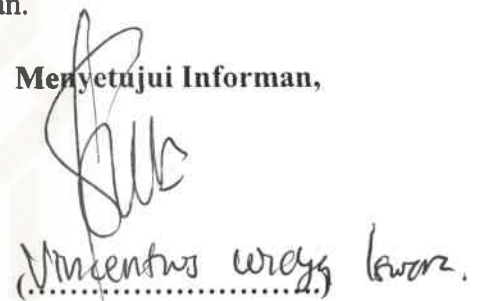 an.
Menyetujui Informan,
Vincentius widya
(..............................)